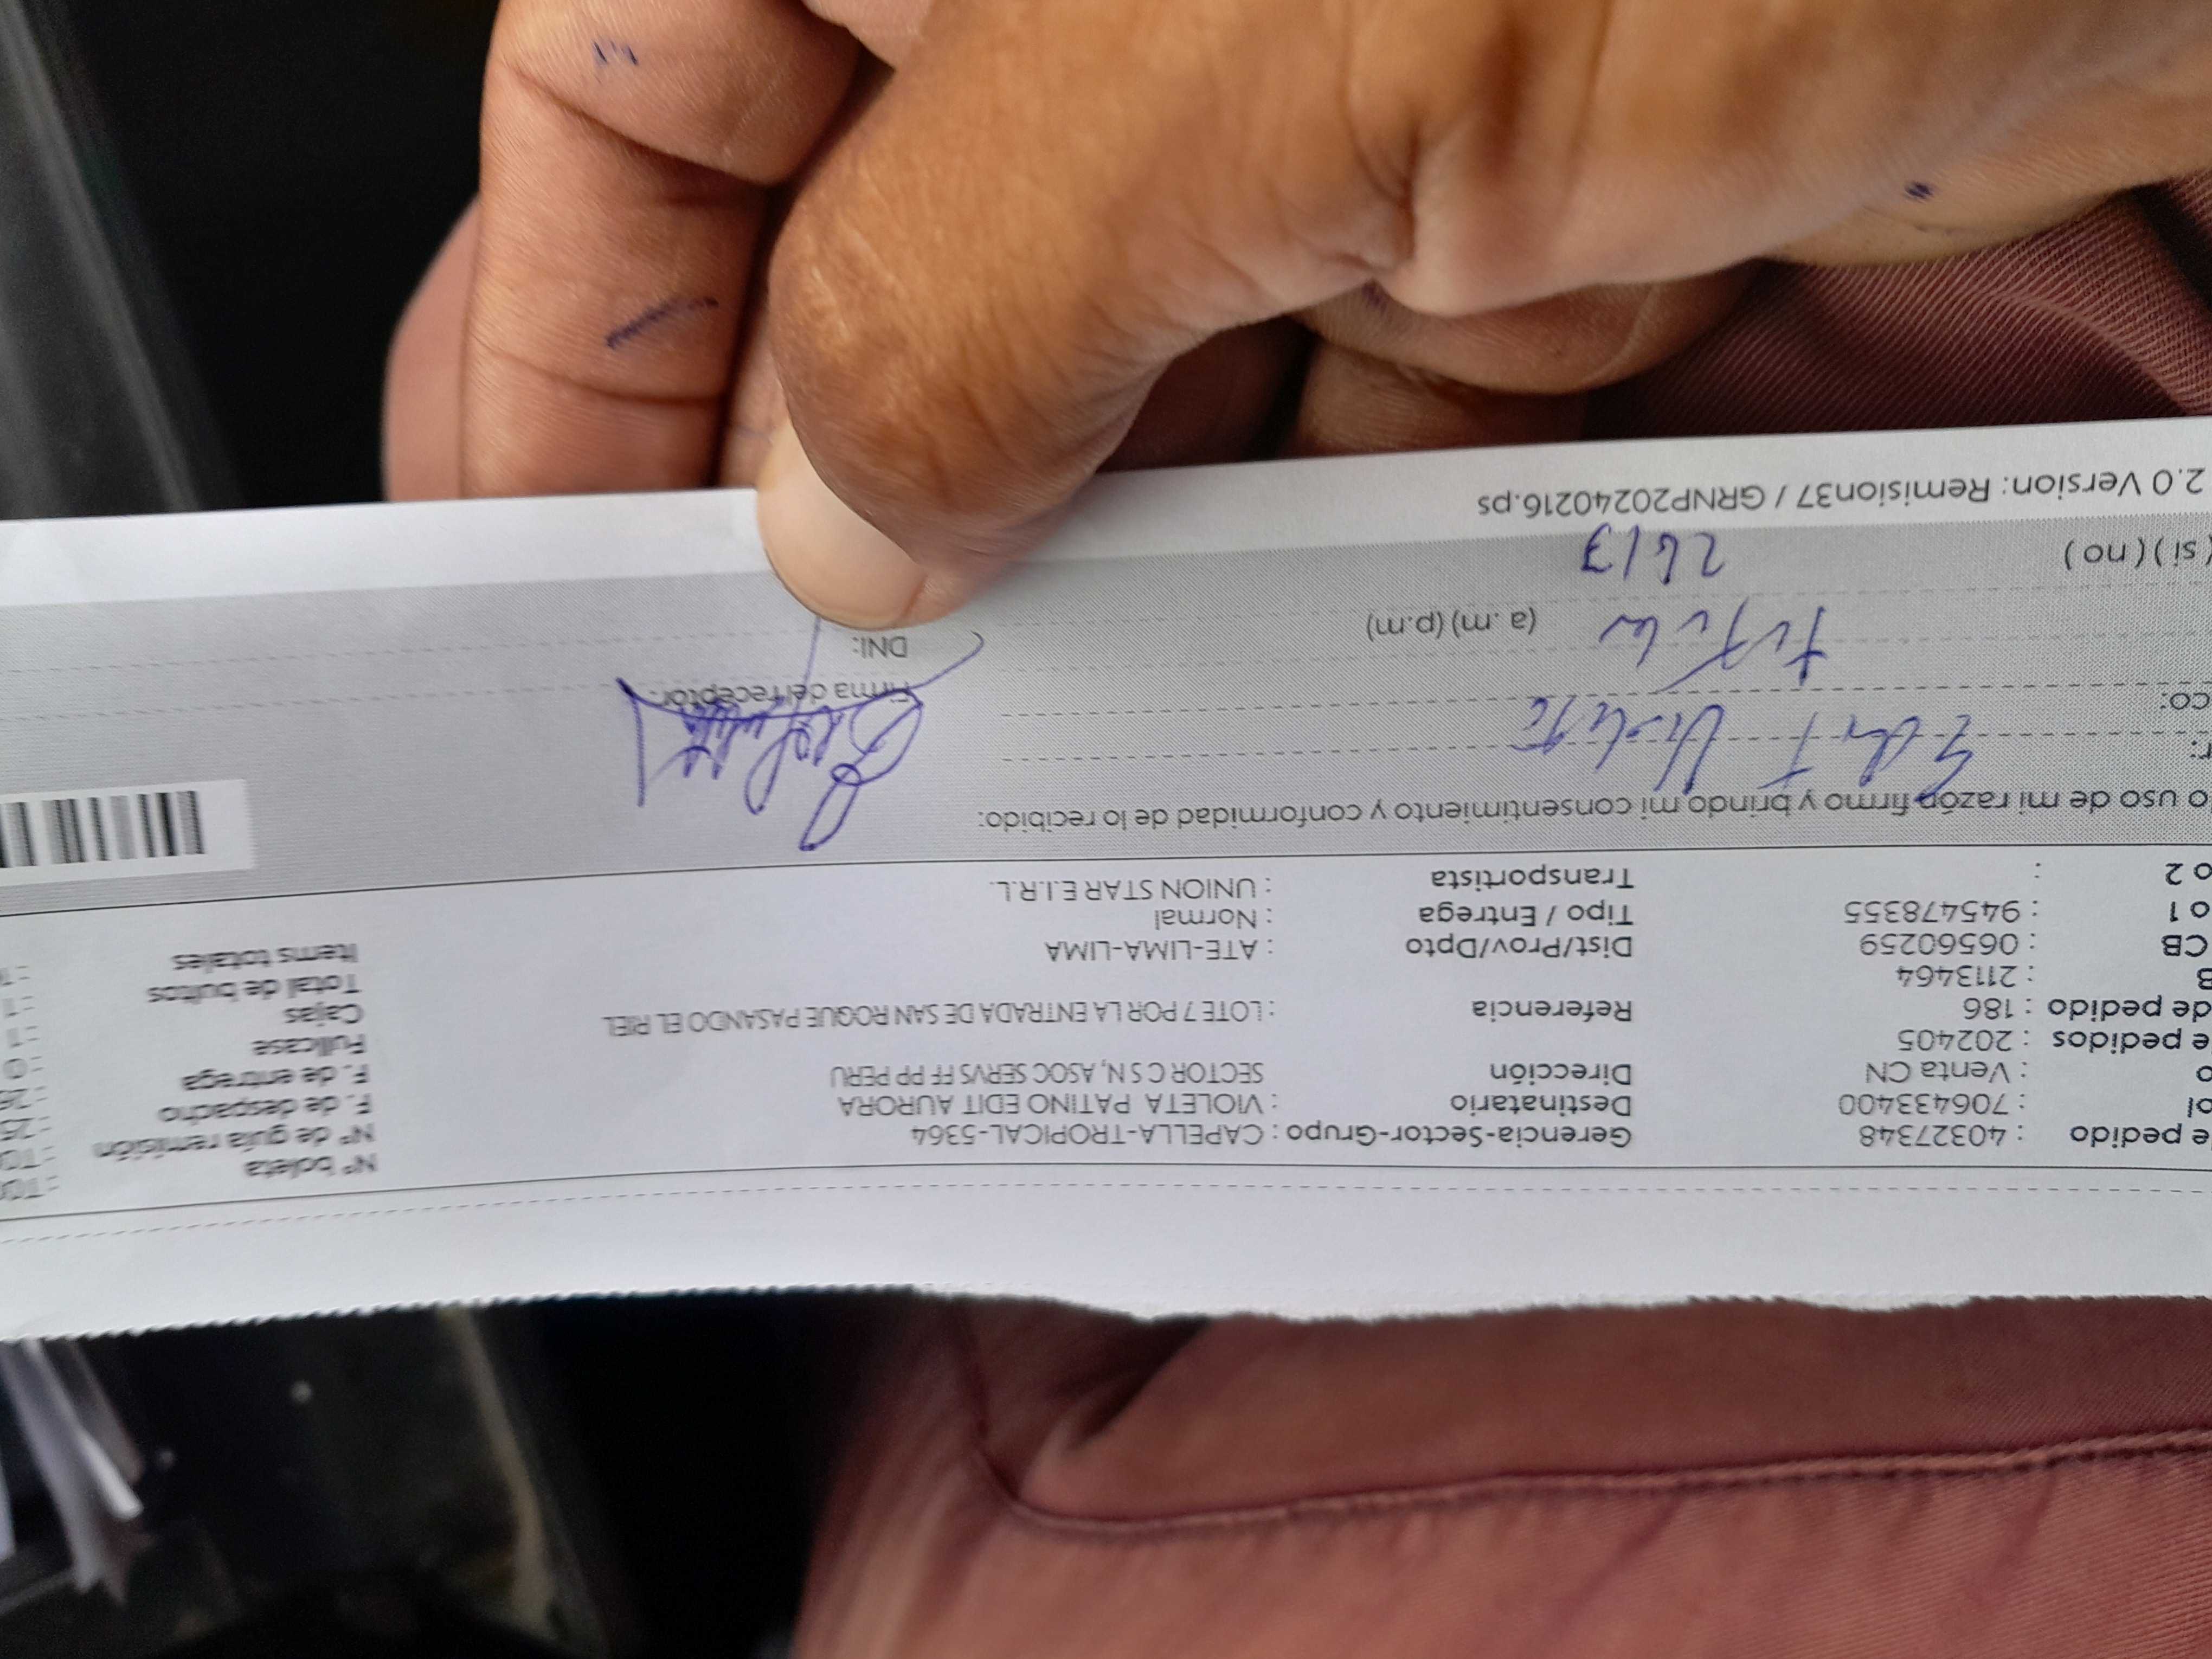 e pedido : 40327348 Gerencia-Sector-Grupo : CAPELLA-TROPICAL-5364 N° boleta
ol : 706433400 Destinatario : VIOLETA PATINO EDIT AURORA N° de guía remisión
o : Venta CN Dirección SECTOR C S N, ASOC SERVS FF PP PERU F. de despacho
e pedidos : 202405 F. de entrega
de pedido : 186 Referencia : LOTE 7 POR LA ENTRADA DE SAN ROQUE PASANDO EL RIEL Fullcase : 0
B : 2113464 Cajas : 1
CB : 06560259 Dist/Prov/Dpto : ATE-LIMA-LIMA Total de bultos : 1
o 1 : 945478355 Tipo / Entrega : Normal Items totales
o 2 : Transportista : UNION STAR E.I.R.L.
o uso de mi razón firmo y brindo mi consentimiento y conformidad de lo recibido:
r: Edit Violeta
co: Firma del receptor:
titular (a.m) (p.m) DNI:
( si ) ( no ) 26/3
2.0 Version: Remision37 / GRNP20240216.ps